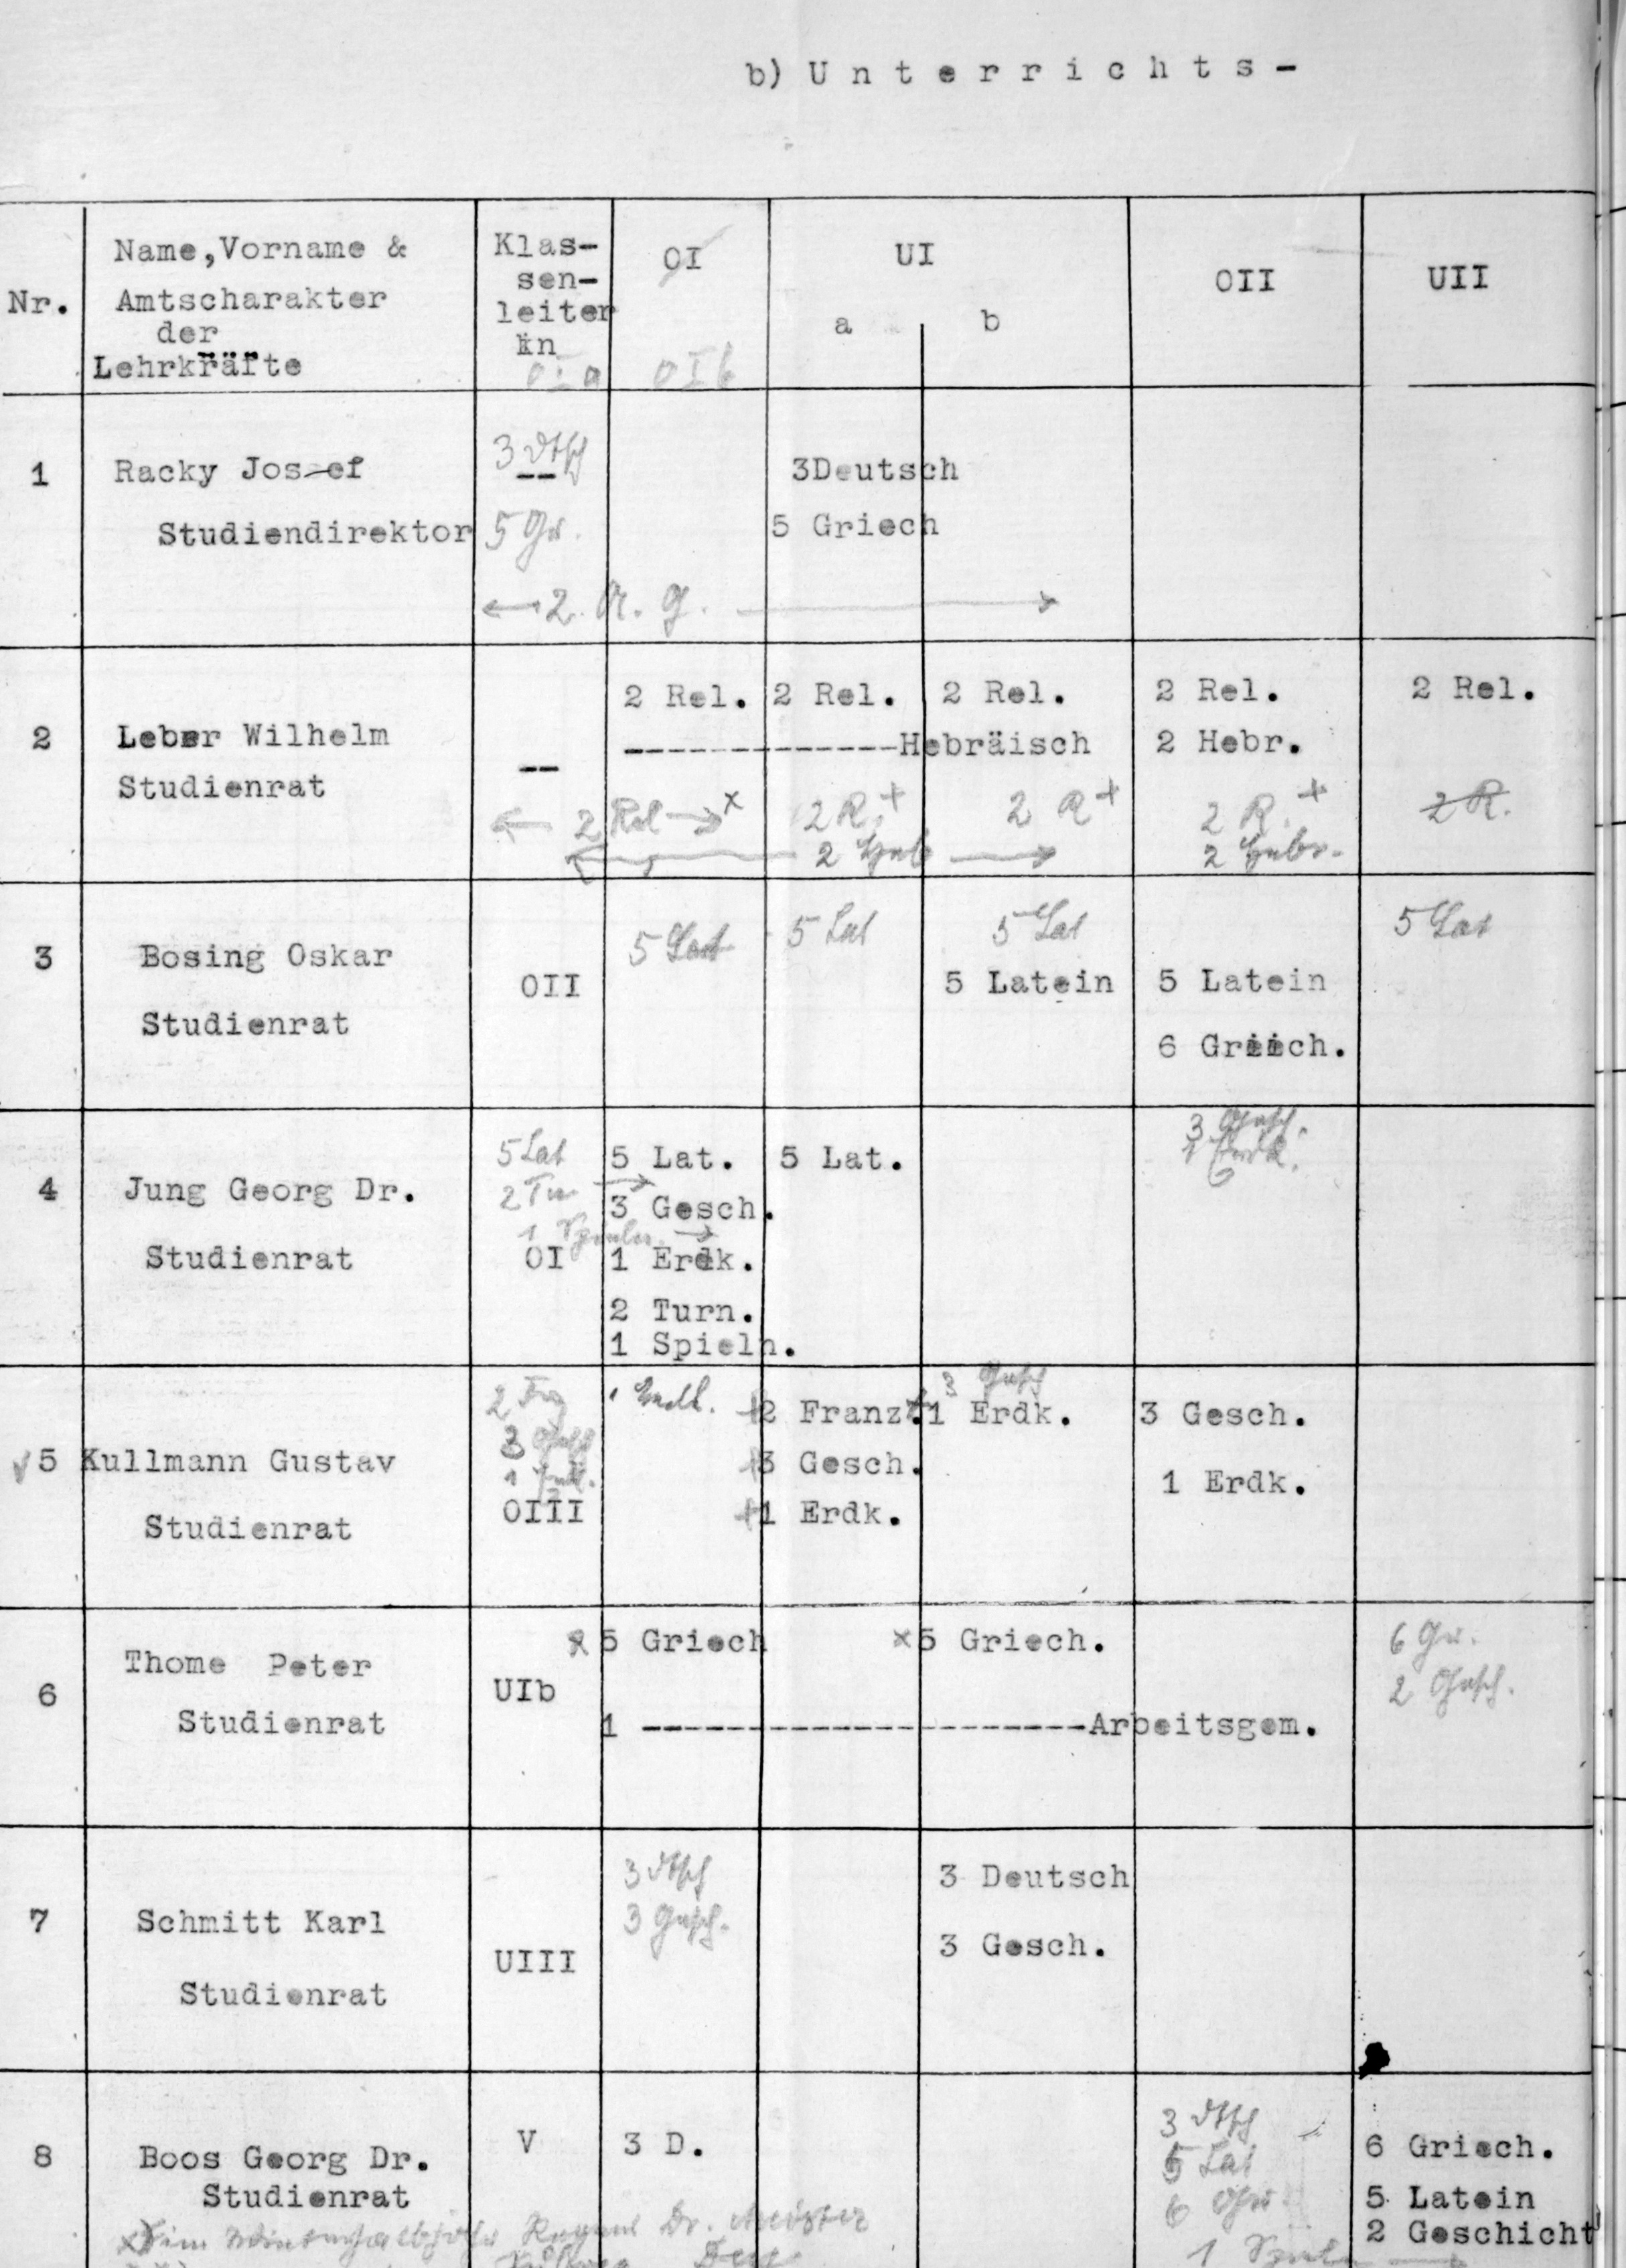 b) Unterrichts-
Nr.
Name,Vorname &
Amtscharakter
der
Lehrkräfte
Klas-
sen-
leiter
in
OI
UI
a b
OII
UII
OIa OIb
1
Racky Josef
Studiendirektor
3 Dtsch
--
5 Gr.
3Deutsch
5 Griech
2. A. G.
2
Leber Wilhelm
Studienrat
--
2 Rel. 2 Rel. 2 Rel. 2 Rel. 2 Rel.
-------------Hebräisch 2 Hebr.
2 Rel x 2 R.+ 2 R+ 2 R.+ 2 R.
2 Heb 2 Hebr.
3
Bosing Oskar
Studienrat
OII
5 Lat 5 Lat 5 Lat 5 Lat
5 Latein 5 Latein
6 Griech.
4
Jung Georg Dr.
Studienrat
5 Lat
2 Tu
1 Spieln.
OI
5 Lat. 5 Lat.
3 Gesch.
1 Erdk.
2 Turn.
1 Spieln.
3 Gesch.
1 Erdk.
5
Kullmann Gustav
Studienrat
3 Gesch
1 Erdk.
OIII
1 Erdk.
2 Franz.
3 Gesch.
1 Erdk.
3 Gesch
1 Erdk.
3 Gesch.
1 Erdk.
6
Thome Peter
Studienrat
UIb
x 5 Griech x5 Griech.
1 ---------------------Arbeitsgem.
6 Gr.
2 Gesch.
7
Schmitt Karl
Studienrat
UIII
3 Dtsch
3 Gesch.
3 Deutsch
3 Gesch.
8
Boos Georg Dr.
Studienrat
V
3 D.
3 Dtsch
5 Lat
6 Gr.
1 Spieln
6 Griech.
5 Latein
2 Geschicht
x) im Winterhalbjahr Dr. Meister